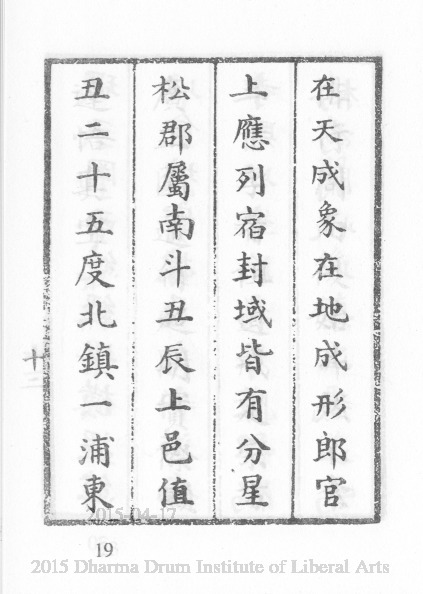 在天成象在地成形郎官
上應列宿封域皆有分星
松郡屬南斗丑辰上邑值
丑二十五度北鎮一浦東
十二
2015-04-17
19
2015 Dharma Drum Institute of Liberal Arts